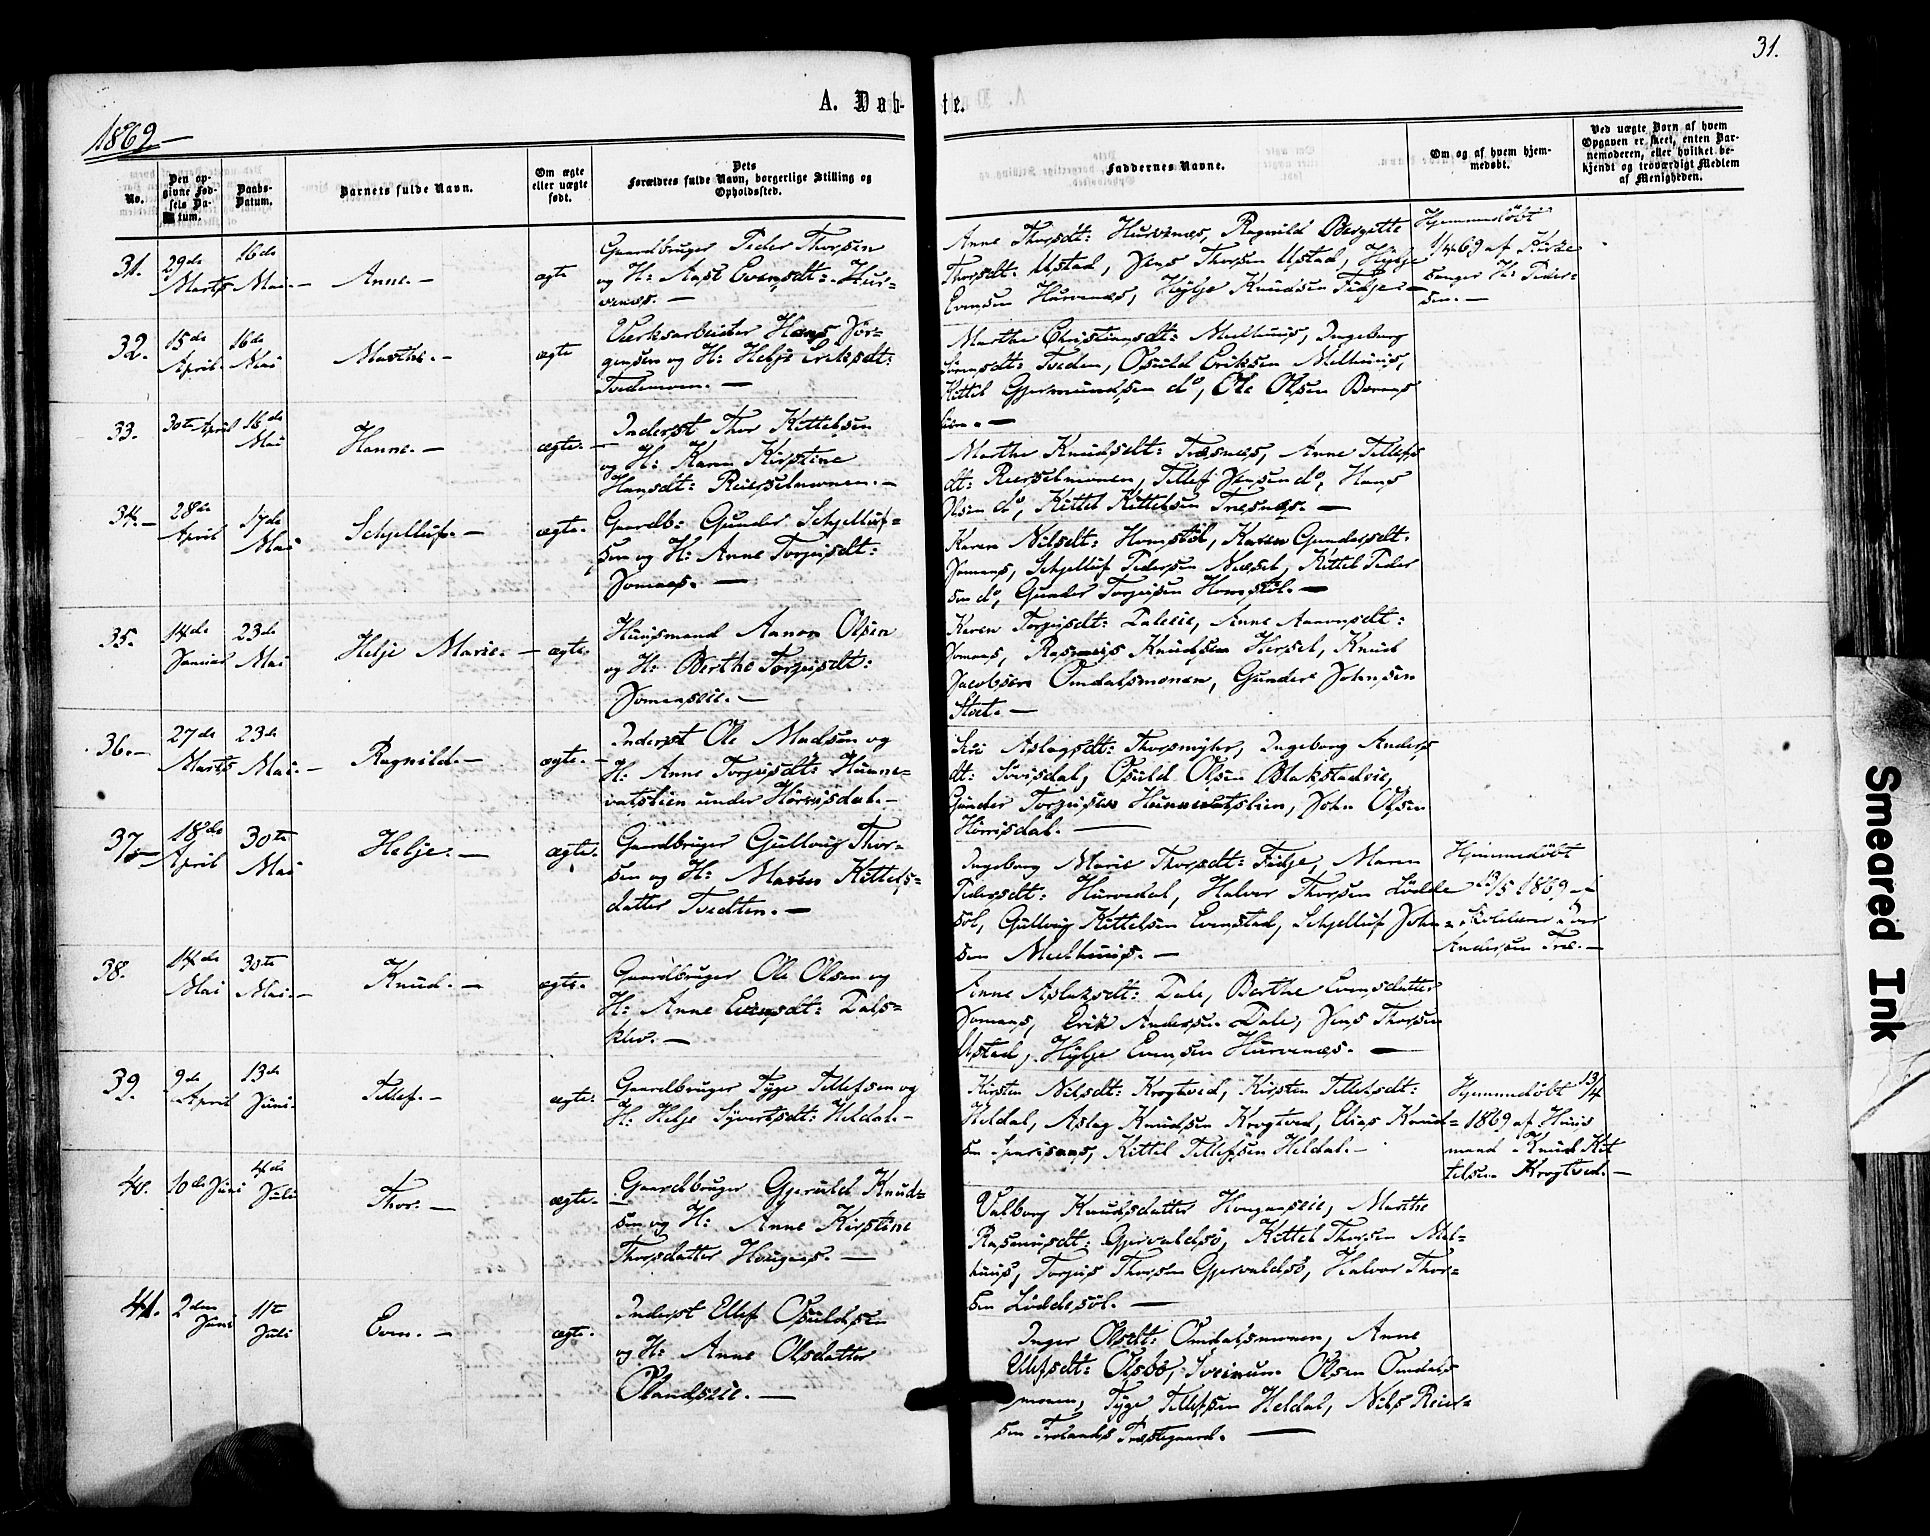 31.
A. Døb-te.
1869
No.
Den op-
givne Fød-
sels Da-
tum.
Daabs-
Datum.
Barnets fulde Navn.
Om ægte
eller uægte
født.
Dets
Forældres fulde Navn, borgerlige Stilling og
Opholdssted.
Faddernes Navne.
Om og af hvem hjem-
medøbt.
Ved uægte Børn af hvem
Opgaven er skeet, enten Bar-
nemoderen, eller hvilket be-
kjendt og troværdigt Medlem
af Menigheden.
31.
29de
Marts
16de
Mai.
Anne. —
ægte
Gaardbruger Peder Thorsen
og H: Aase Evensdt: Hur-
venæs. —
Anne Thorsdt: Hurvenæs, Ragnild Bergitte
Thorsdt: Ustad, Jens Thorsen Ustad, Hylje
Evensen Hurvenæs, Hylje Knudsen Fidje —
Hjemmedöbt
1/4 69 af Kirke
sanger H: Peder-
sen. —
32.
15de
April.
16de
Mai
Marthe. —
ægte
Værksarbeider Hans Jör-
gensen og H: Helje Eriksdt:
Tvedemoen. —
Marthe Christiansdt: Melhuus, Ingeborg
Tveden, Osuld Eriksen Melhuus,
Kittel Gjermundsen do, Ole Olsen
33.
30te April
16de
Mai
Hanne. —
ægte. —
Inderst Thor Kittelsen
og H: Karen Kirstine
Hansdt: Reierselmoen. —
Marthe Knudsdt: Træsnæs, Anne Tellefs
dt: Reierselmonen, Tellef Jensen do, Hans
Olsen do, Kittel Kittelsen Tresnæs. —
34. —
28de
April
17de
Mai
Schjelluf. —
ægte.
Gaardb: Gunder Schjelluf-
sen og H: Anne Torjusdt:
Jomaas. —
Karen Nilsdt: Homstöl, Karen Gundersdt.
Jomaas, Schjelluf Pedersen Næsel, Kittel Peder
sen do, Gunder Torjusen Homstöl. —
35.
14de
Januar
23de
Mai
Helje Marie. —
ægte.
Huusmand Aanon Olsen
og H: Berthe Torjusdt:
Jomaaseie. —
Karen Torjusdt: Daleeie, Anne Aanonsdt:
Jomaas, Rasmus Knudsen Hersel, Knud
Jacobsen Omdalsmonen, Gunder Johnsen
Stoet. —
36. —
27de
Marts
23de
Mai. —
Ragnild. —
ægte. —
Inderst Ole Madsen og
H: Anne Torjusdt: Hunne-
vatslien under Hörrisdal. —
Siri Aslagsdt: Thorsmyhr, Ingeborg Anders
dt: Lövisdal, Osuld Olsen Blakstadeie,
Gunder Torjusen Hunnevatslien, John Olsen
Hörrisdal. —
37. —
18de
April
30te
Mai
Helje. —
ægte.
Gaardbruger Gullov Thor-
sen og H: Maren Kittels-
datter Tvedten. —
Ingeborg Marie Thorsdt: Fidje, Maren
Pedersdt: Hurvedal, Halvor Thorsen Lödde
söl, Gullov Kittelsen Evenstad, Schjelluf John-
sen Melhuus. —
Hjemmedöbt
13/5 1869 —
Skolelærer
Andersen Træ. —
38.
14de
Mai
30te
Mai. —
Knud. —
ægte.
Gaardbruger Ole Olsen og
H: Anne Evensdt: Dals-
klev. —
Anne Aslaksdt: Dale, Berthe Evensdatter
Jomaas, Erik Andersen Dale, Jens Thorsen
Ustad, Hylje Evensen Hurvenæs. —
39.
9de
April
13de
Juni.
Tellef. —
ægte. —
Gaardbruger Tyge Tellefsen og
H: Helje Syvertsdt: Heldal. —
Kirsten Nilsdt: Krogtved, Kirsten Tellefsdt:
Heldal, Aslag Knudsen Krogtved, Elias Knud-
sen, Kittel Tellefsen Heldal. —
Hjemmedöbt 13/4
1869 af Huus
mand Knud Kit
telsen Krogtved. —
40.
10de Juni
4de
Juli
Thor. —
ægte. —
Gaardbruger Gjeruld Knud-
sen og H: Anne Kirstine
Thorsdatter Hougaas. —
Valborg Knudsdatter Hougaaseie, Marthe
Rasmusdt: Gjervaldsö, Kittel Thorsen Mel-
huus, Torjus Thorsen Gjervaldsö, Halvor Thor-
sen Löddesöl. —
41.
2den
Juni
11te
Juli
Even. —
ægte.
Inderst Ellef Osuldsen
og H: Anne Olsdatter
Ölandseie. —
Inger Olsdt: Omdalsmonen, Anne
Ellefsdt: Olsbö, Sveinum Olsen Omdals
monen, Tyge Tellefsen Heldal, Nils Reier-
sen Frolands Præstegaard. —
Smeared Ink